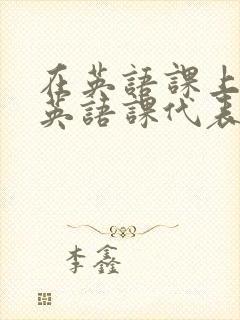 在英語課上
英語課代表
李鑫